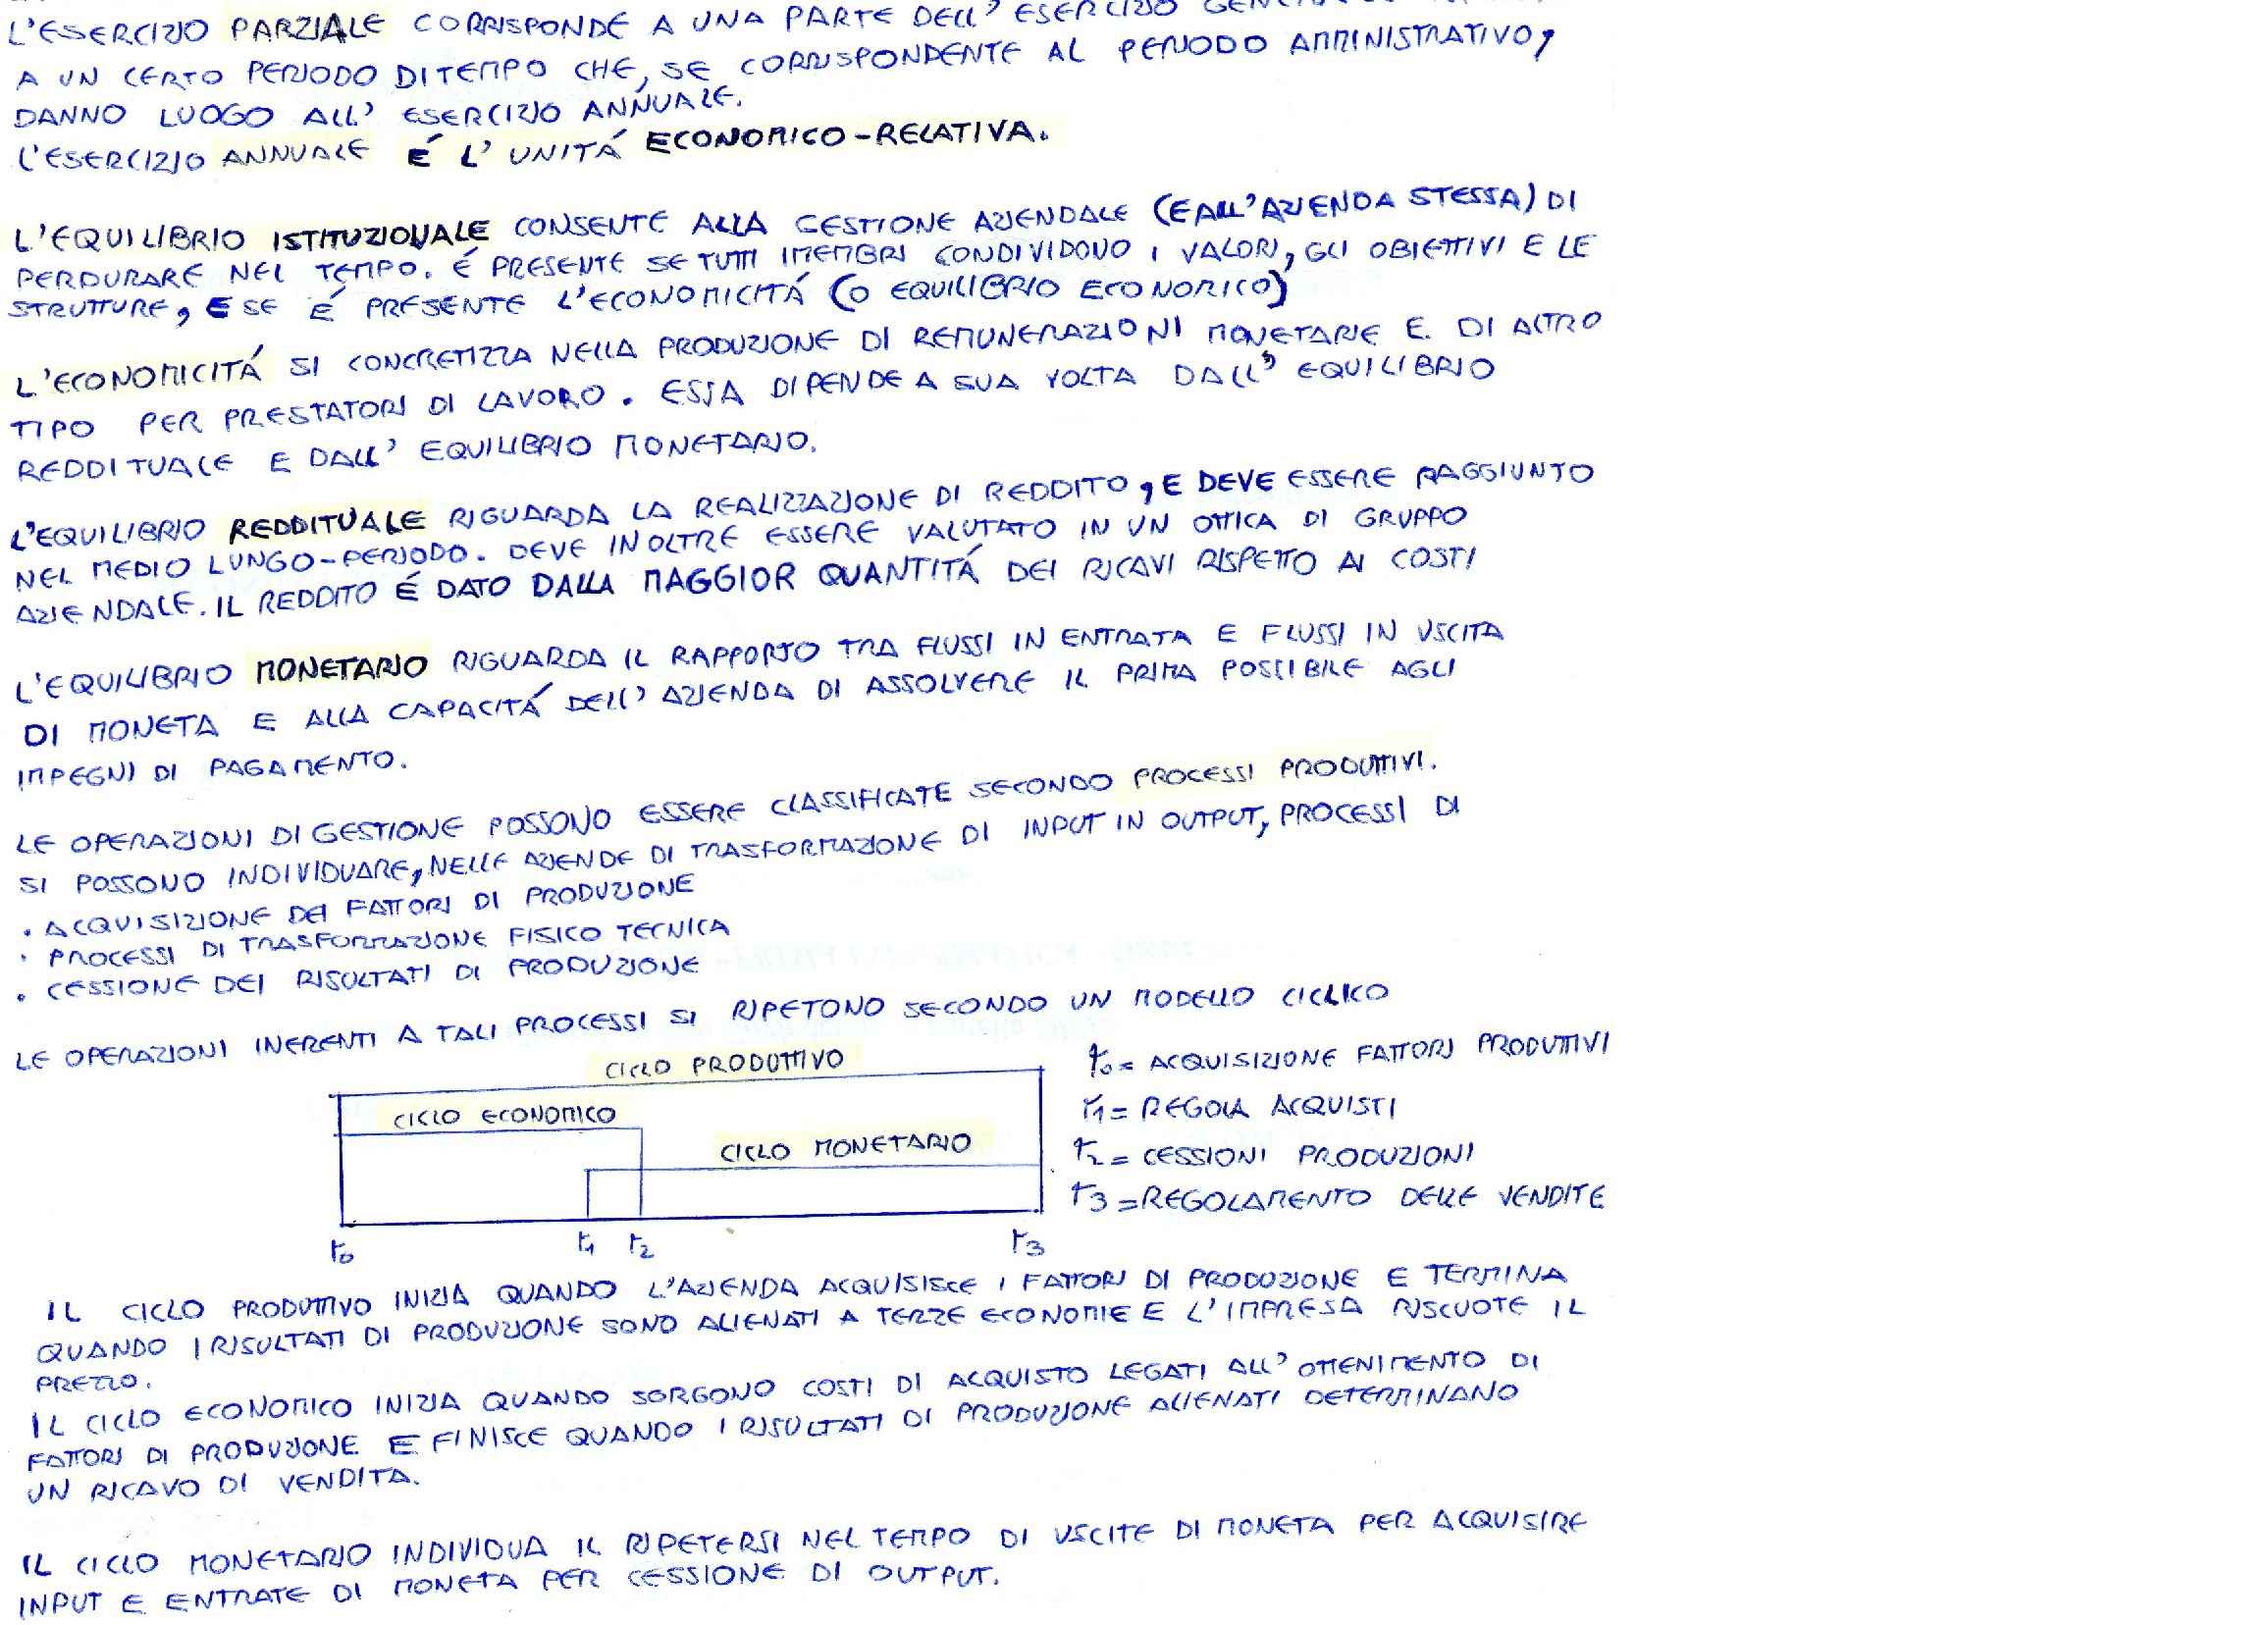 L'ESERCIZIO PARZIALE CORRISPONDE A UNA PARTE DELL'ESERCIZIO
A UN CERTO PERIODO DI TEMPO CHE, SE CORRISPONDENTE AL PERIODO AMMINISTRATIVO,
DANNO LUOGO ALL'ESERCIZIO ANNUALE.
L'ESERCIZIO ANNUALE É L'UNITÁ ECONOMICO-RELATIVA.
L'EQUILIBRIO ISTITUZIONALE CONSENTE ALLA GESTIONE AZIENDALE (E ALL'AZIENDA STESSA) DI
PERDURARE NEL TEMPO. É PRESENTE SE TUTTI I MEMBRI CONDIVIDONO I VALORI, GLI OBIETTIVI E LE
STRUTTURE, E SE É PRESENTE L'ECONOMICITÁ (O EQUILIBRIO ECONOMICO)
L'ECONOMICITÁ SI CONCRETIZZA NELLA PRODUZIONE DI REMUNERAZIONI MONETARIE E DI ALTRO
TIPO PER PRESTATORI DI LAVORO. ESSA DIPENDE A SUA VOLTA DALL'EQUILIBRIO
REDDITUALE E DALL'EQUILIBRIO MONETARIO.
L'EQUILIBRIO REDDITUALE RIGUARDA LA REALIZZAZIONE DI REDDITO, E DEVE ESSERE RAGGIUNTO
NEL MEDIO LUNGO-PERIODO. DEVE INOLTRE ESSERE VALUTATO IN UN OTTICA DI GRUPPO
AZIENDALE. IL REDDITO É DATO DALLA MAGGIOR QUANTITÁ DEI RICAVI RISPETTO AI COSTI
L'EQUILIBRIO MONETARIO RIGUARDA IL RAPPORTO TRA FLUSSI IN ENTRATA E FLUSSI IN USCITA
DI MONETA E ALLA CAPACITÁ DELL'AZIENDA DI ASSOLVERE IL PRIMA POSSIBILE AGLI
IMPEGNI DI PAGAMENTO.
LE OPERAZIONI DI GESTIONE POSSONO ESSERE CLASSIFICATE SECONDO PROCESSI PRODUTTIVI.
SI POSSONO INDIVIDUARE, NELLE AZIENDE DI TRASFORMAZIONE DI INPUT IN OUTPUT, PROCESSI DI
• ACQUISIZIONE DEI FATTORI DI PRODUZIONE
• PROCESSI DI TRASFORMAZIONE FISICO TECNICA
• CESSIONE DEI RISULTATI DI PRODUZIONE
LE OPERAZIONI INERENTI A TALI PROCESSI SI RIPETONO SECONDO UN MODELLO CICLICO
CICLO PRODUTTIVO
CICLO ECONOMICO
CICLO MONETARIO
t0 t1 t2 t3
t0 = ACQUISIZIONE FATTORI PRODUTTIVI
t1 = REGOLA ACQUISTI
t2 = CESSIONI PRODUZIONI
t3 = REGOLAMENTO DELLE VENDITE
IL CICLO PRODUTTIVO INIZIA QUANDO L'AZIENDA ACQUISISCE I FATTORI DI PRODUZIONE E TERMINA
QUANDO I RISULTATI DI PRODUZIONE SONO ALIENATI A TERZE ECONOMIE E L'IMPRESA RISCUOTE IL
PREZZO.
IL CICLO ECONOMICO INIZIA QUANDO SORGONO COSTI DI ACQUISTO LEGATI ALL'OTTENIMENTO DI
FATTORI DI PRODUZIONE E FINISCE QUANDO I RISULTATI DI PRODUZIONE ALIENATI DETERMINANO
UN RICAVO DI VENDITA.
IL CICLO MONETARIO INDIVIDUA IL RIPETERSI NEL TEMPO DI USCITE DI MONETA PER ACQUISIRE
INPUT E ENTRATE DI MONETA PER CESSIONE DI OUTPUT.